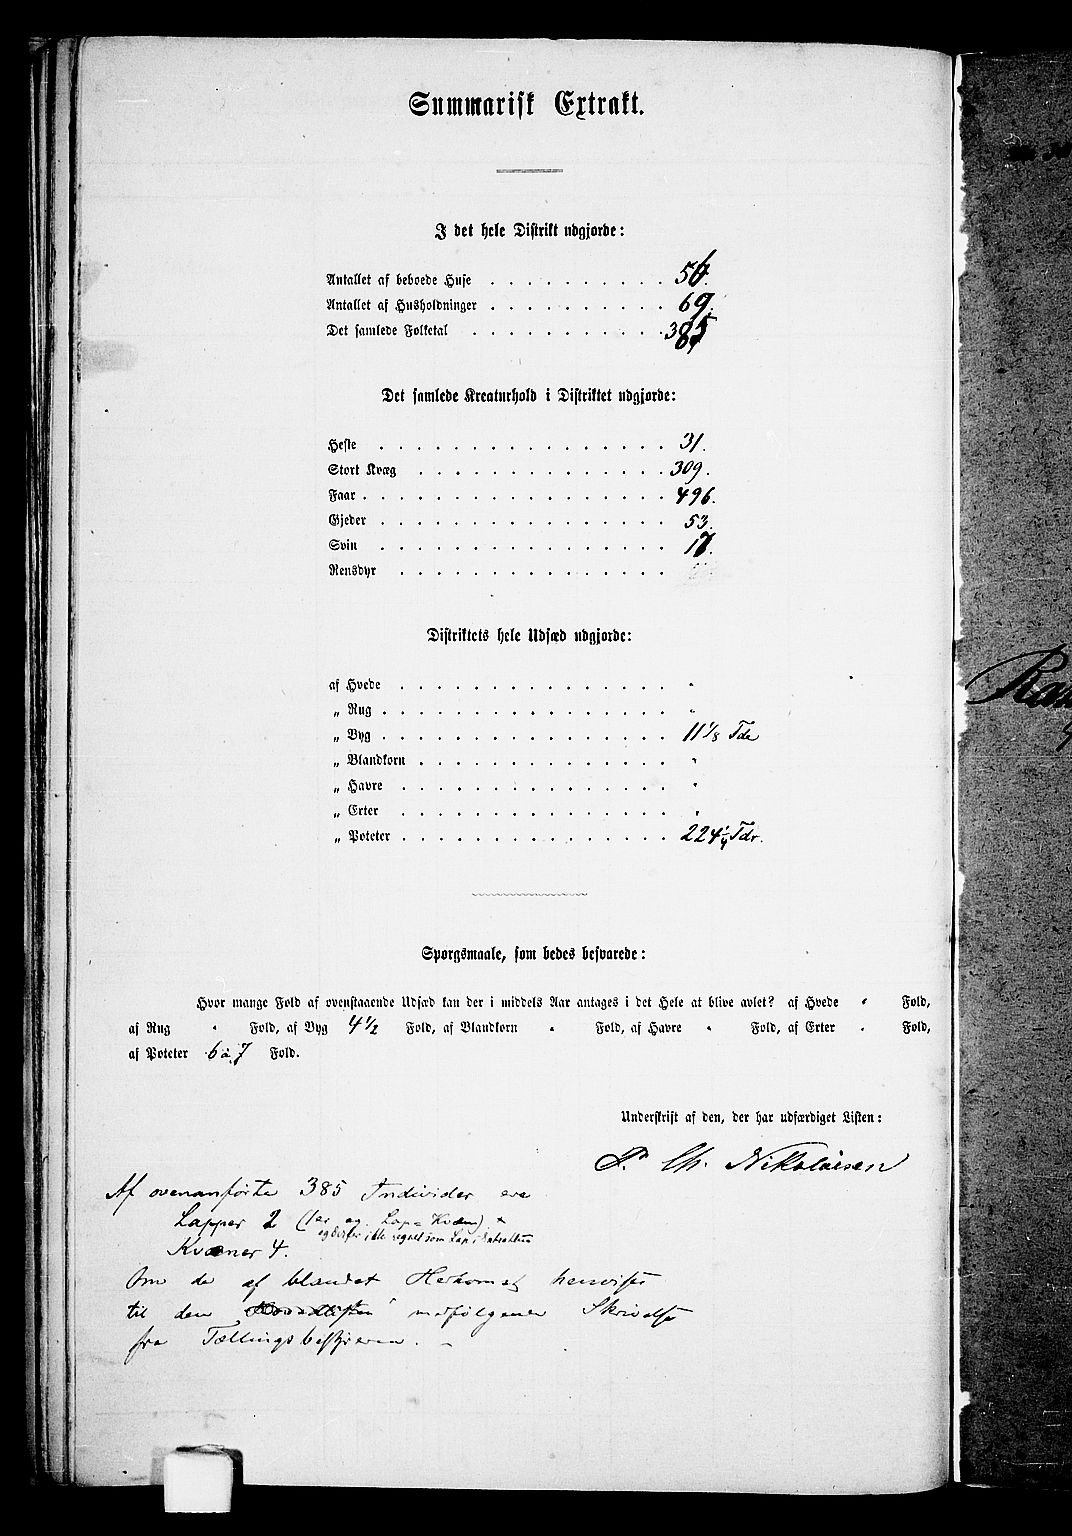 Summarisk Extrakt.
I det hele Distrikt udgjorde:
Antallet af beboede Huse 56.
Antallet af Husholdninger 69.
Det samlede Folketal 385
Det samlede Kreaturhold i Distriktet udgjorde:
Heste 31.
Stort Kvæg 309.
Faar 496.
Gjeder 53.
Svin 17.
Rensdyr
Distriktets hele Udsæd udgjorde:
af Hvede "
„ Rug "
„ Byg 11 1/8 Tdr
„ Blandkorn "
„ Havre "
„ Erter "
„ Poteter 224 1/4 Tdr.
Spørgsmaale, som bedes besvarede:
Hvor mange Fold af ovenstaaende Udsæd kan der i middels Aar antages i det Hele at blive avlet? af Hvede " Fold,
af Rug " Fold, af Byg 4 1/2 Fold, af Blandkorn " Fold, af Havre " Fold, af Erter " Fold,
af Poteter 6 à 7 Fold.
Underskrift af den, der har udfærdiget Listen:
P. Ch. Nikolaisen
Af ovenanførte 385 Individer ere
Lapper 2 (1 er eg. Lap = Kvæn)
og derfor ikke regnet som Lap i
Kvæner 4.
Om de af blandet Herkomst henvises
til den medfølgende Skrivelse
fra Tællingsbestyreren. –
Ran